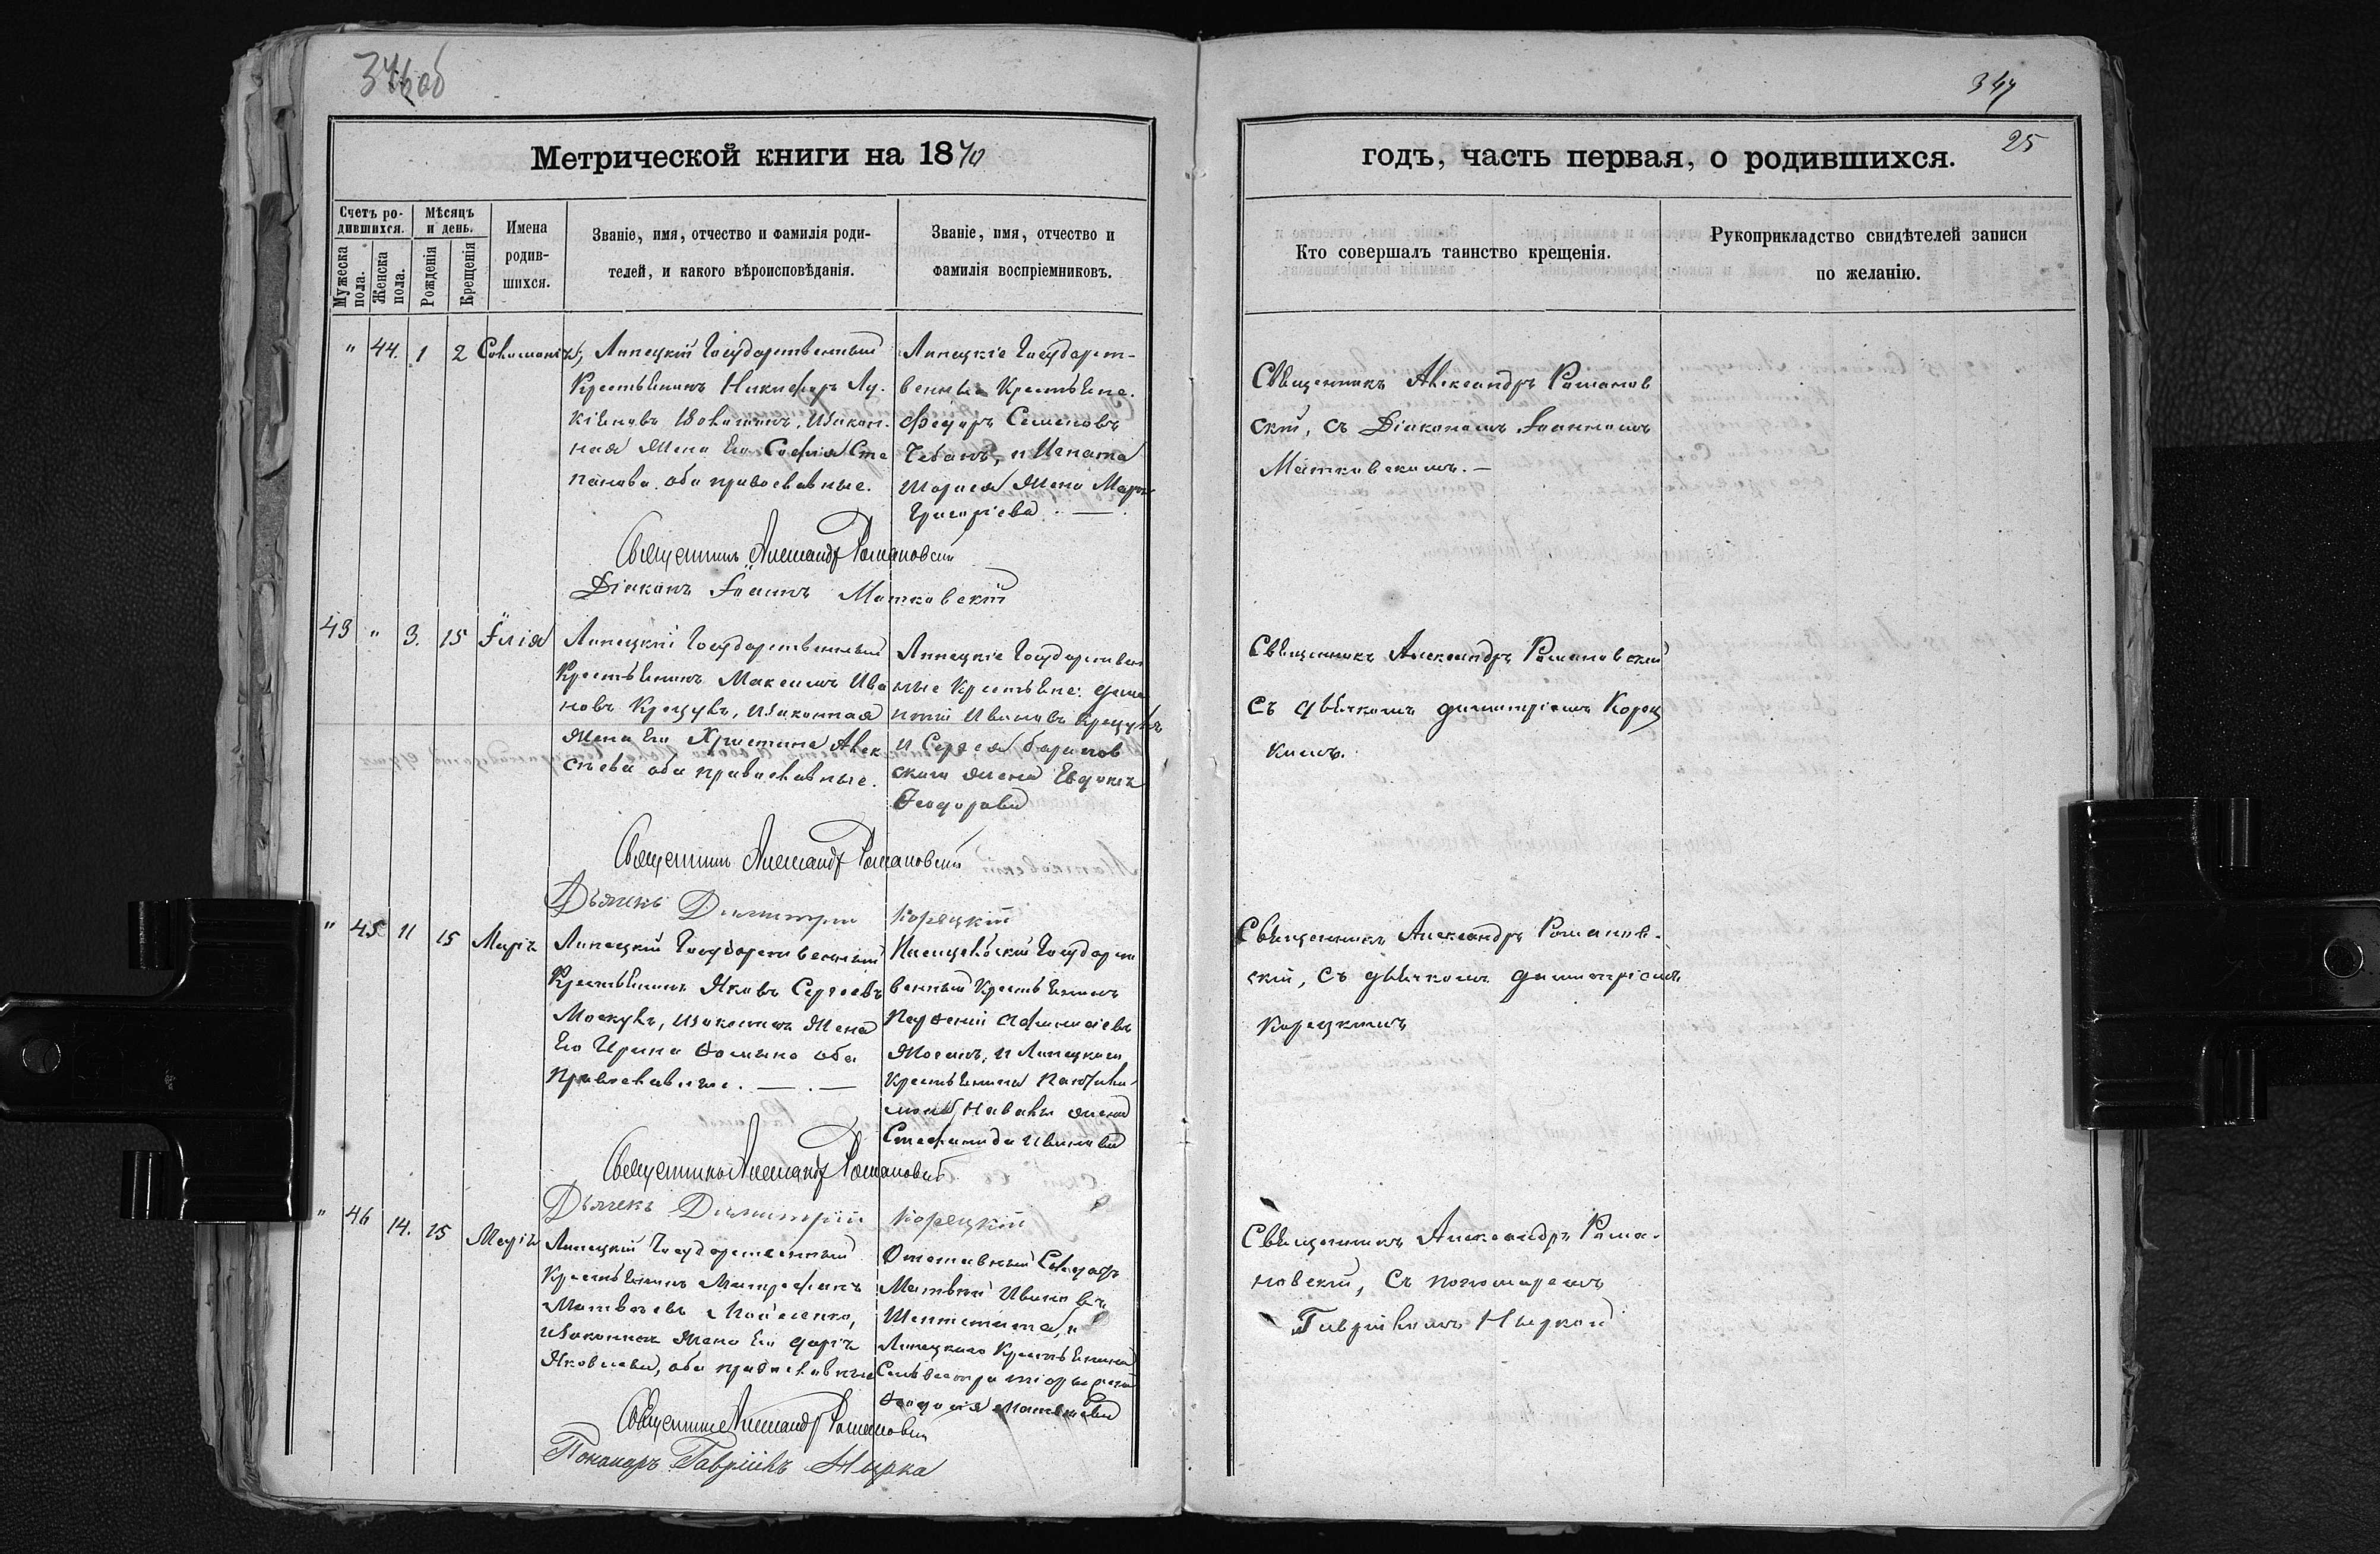 346об
Метрической книги на 1870
Счетъ ро-
дившихся.
Мѣсяцъ
и день.
Мужеска
пола.
Женска
пола.
Рожденія
Крещенія
Имена
родив-
шихся.
Званіе, имя, отчество и фамилія роди-
телей, и какого вѣроисповѣданія.
Званіе, имя, отчество и
фамилія воспріемниковъ.
" 44. 1 2
Липецкій Государственный
Крестьянинъ Никифоръ Лу-
кіяновъ законная
жена Его Софія Сте
панова оба православные.
Липецкіе Государст-
венные Крестьяне.
Феодоръ Семеновъ
Чебанъ, и Игната
жена Марія
Григоріева
Священникъ Александръ Романовскій
Діаконъ Іоаннъ Матковскій
43 " 3. 15 Илія
Липецкій Государственный
Крестьянинъ Максимъ Ива
новъ Крецулъ, законная
жена Его Христина Алек
сѣева оба православные.
Липецкіе Государствен
ные Крестьяне: Дими
трій Ивановъ Крецулъ
и Сергея
жена Евдокія
Феодорова
Священникъ Александръ Романовскій
Дьячекъ Димитрій Корецкій
" 45 11 15 Марія
Липецкій Государственный
Крестьянинъ Яковъ Сергеевъ
законная жена
Его Ирина Фомина оба
православные.
Государст
венный Крестьянинъ
Парфеній Афанасіевъ
и Липецкаго
Крестьянина
жена
Стефанида Иванова
Священникъ Александръ Романовскій
Дьячекъ Димитрій Корецкій
" 46 14. 15 Марія
Липецкій Государственный
Крестьянинъ Митрофанъ
Матвѣевъ
законная жена Его Дарія
Яковлева, оба православные
Отставный Солдатъ
Матвѣй Ивановъ
Липецкаго Крестьянина
Сильвестра жена
Феодосія
Священникъ Александръ Романовскій
Пономарь Гавріилъ Нырка
347
25
годъ, часть первая, о родившихся.
Кто совершалъ таинство крещенія.
Рукоприкладство свидѣтелей записи
по желанію.
Священникъ Александръ Романов
скій, съ Діакономъ Іоанномъ
Матковскимъ.—
Священникъ Александръ Романовскій
съ дьячкомъ Димитріемъ Корец
кимъ.
Священникъ Александръ Романов-
скій, съ дьячкомъ Димитріемъ
Корецкимъ
Священникъ Александръ Рома-
новскій, съ пономаремъ
Гавріиломъ Ныркой